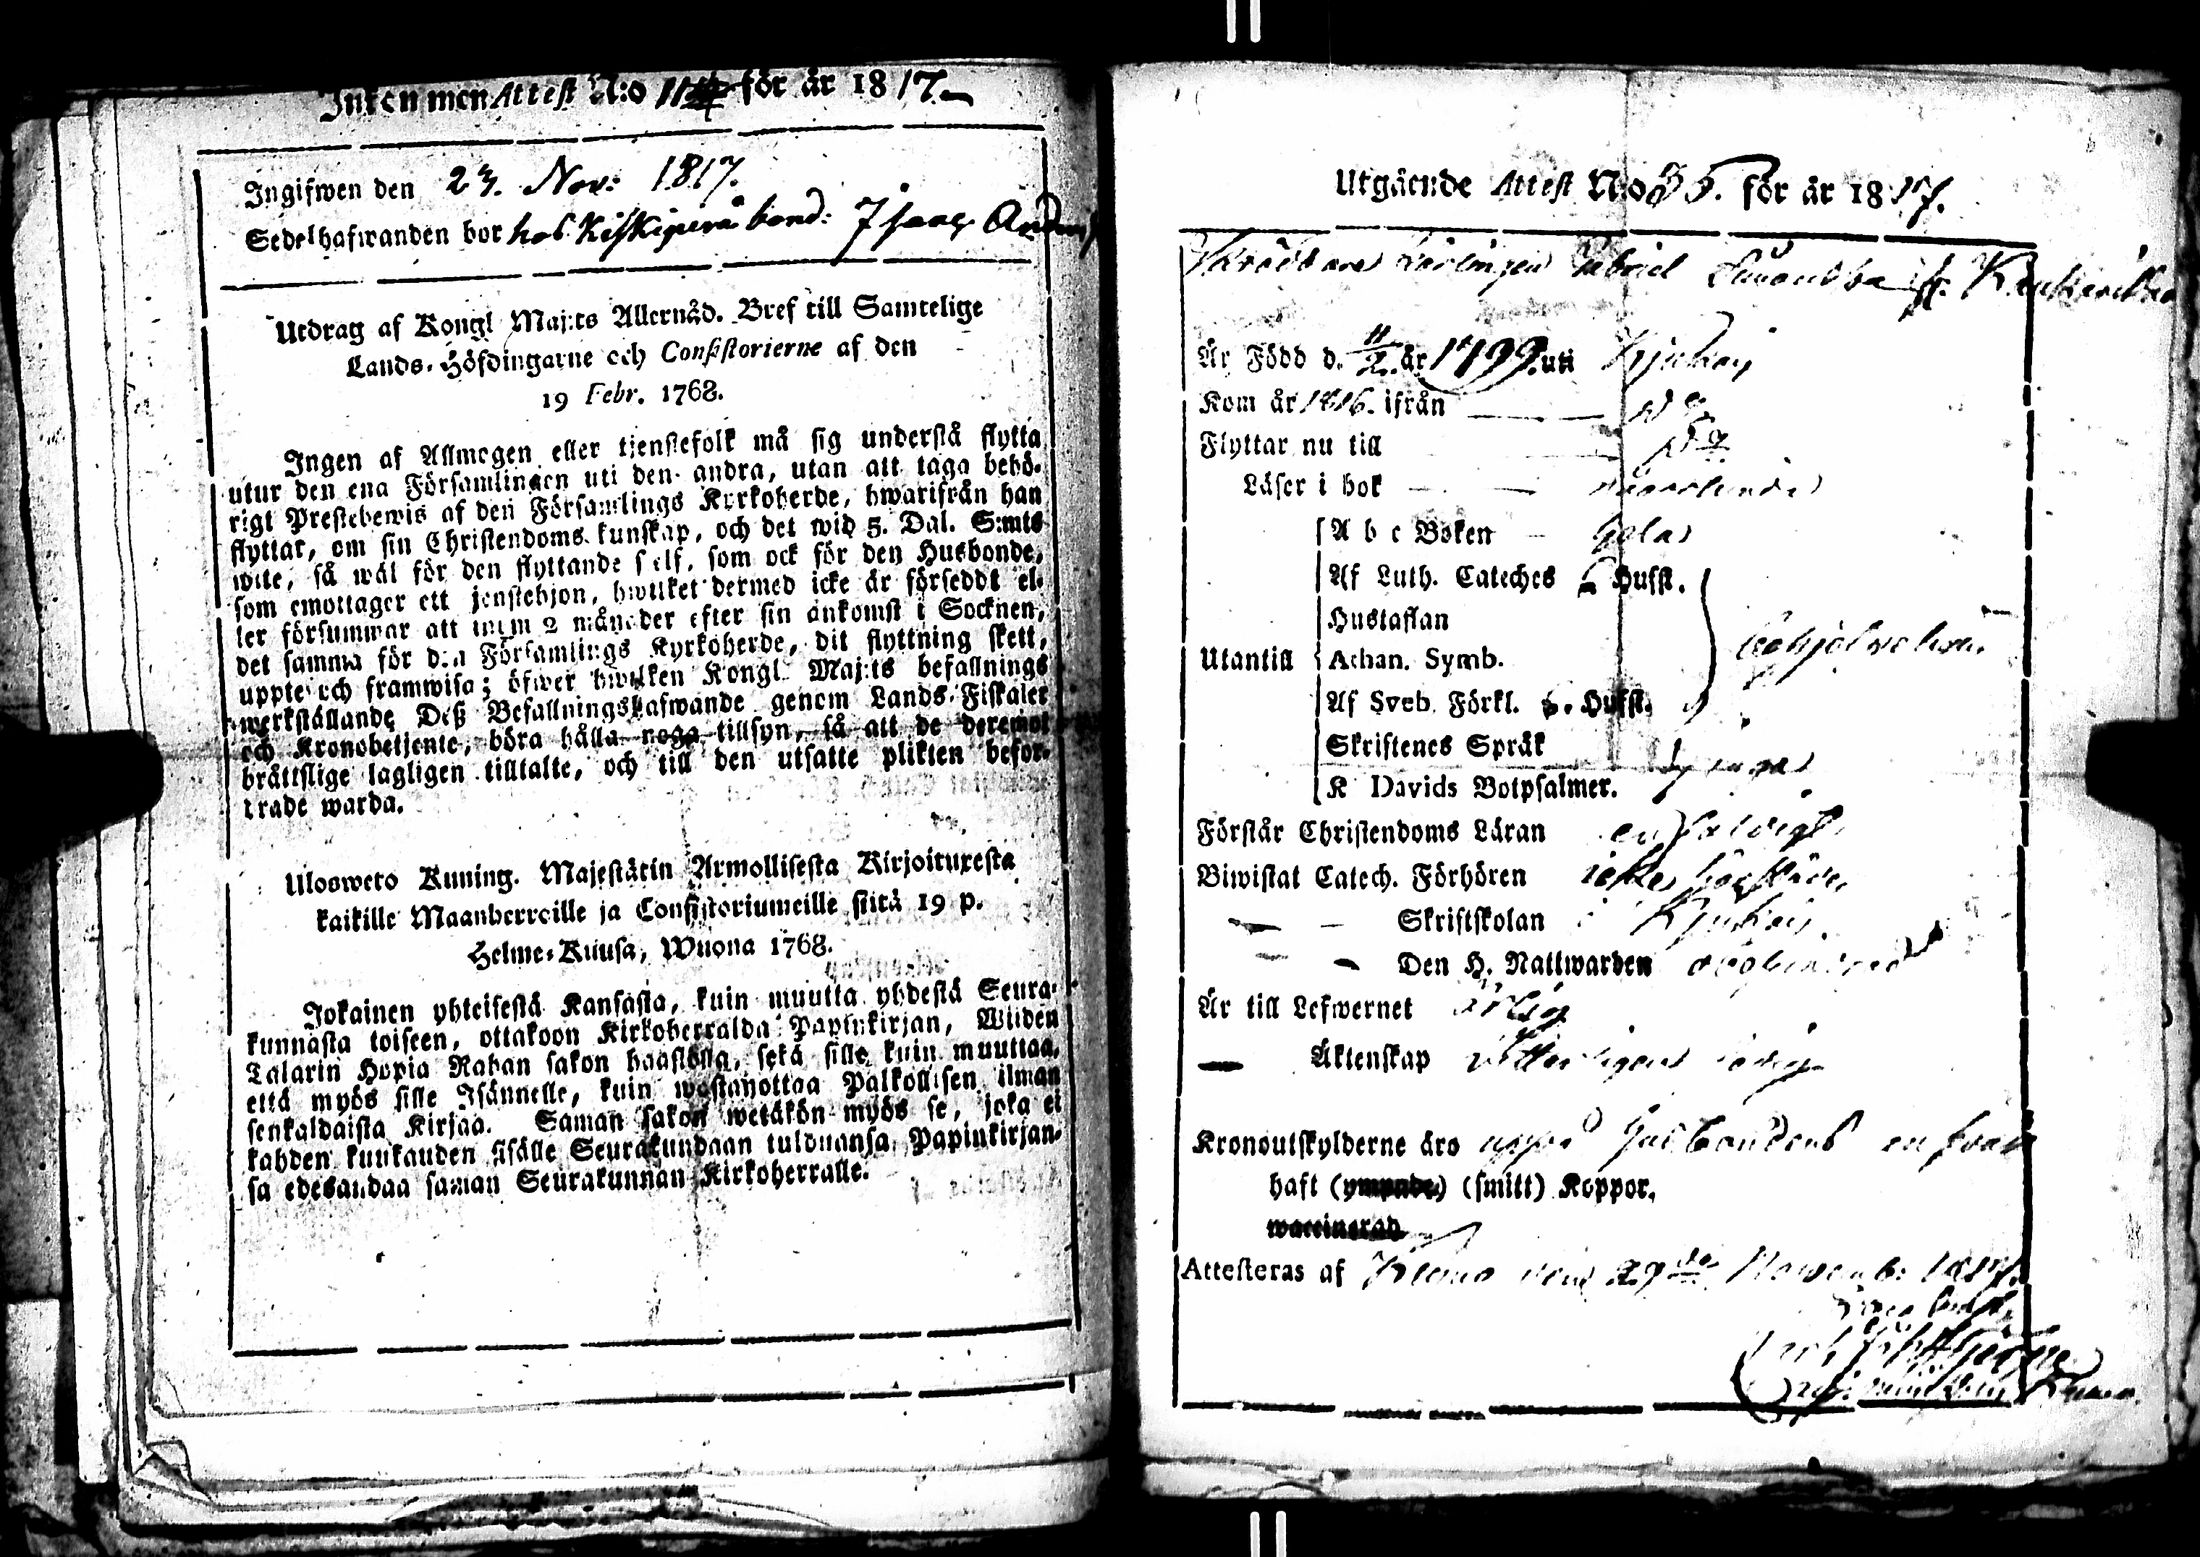 Inkommen Attest N:o 114 för år 1817.
Ingifwen den 23. Nov: 1817.
Sedelhafwanden bor hos Kiskipera bond: Isaac Anders
Utdrag af Kongl Maj:ts Allernåd. Bref till Samtelige
Lands-Höfdingarne och Consistorierne af den
19 Febr. 1768.
Ingen af Allmogen eller tjenstefolk må sig understå flytta
utur den ena Församlingen uti den andra, utan att taga behö-
rigt Prestebewis af den Församlings Kyrkoherde, hwarifrån han
flyttar, om sin Christendoms kunskap, och det wid 5. Dal. S:mts
wite, så wäl för den flyttande self, som ock för den Husbonde,
som emottager ett jenstehjon, hwilket dermed icke är försedt el-
ler försummar att inom 2 månader efter sin ankomst i Socknen,
det samma för den Församlings Kyrkoherde, dit flyttning skett,
uppte och framwisa; öfwer hwilken Kongl Maj:ts befallnings
werkställande Deß Befallningshafwande genom Lands-Fiskaler
och Kronobetjente, böra hålla noga tillsyn, så att de deremot
bråttslige lagligen tilltalte, och till den utsatte plikten befor-
trade warda.
Uloswetо Kuning. Majestätin Armollisesta Kirjoituxesta
kaikille Maanherroille ja Consistoriumeille siitä 19 p.
Helme-Kuusa, Wuona 1768.
Jokainen yhteisestä Kansasta, kuin muutta yhdestä Seura-
kunnasta toiseen, ottakoon Kirkoherralda Papinkirjan, Wiiden
Talarin Hopia Rahan sakon haastolla, sekä sille kuin muuttaa,
että myös sille Isännelle, kuin wastanottaa Palkollisen ilman
senkaldaista Kirjaa. Saman sakon wetäkön myös se, joka ei
kahden kuukauden sisälle Seurakundaan tulduansa Papinkirjan-
sa edesandaa saman Seurakunnan Kirkoherralle.
Utgående Attest N:o 35. för år 1817.
Skräddare Lärlingen Gabriel fr.
Är Född d. 11/2. år 1799. uti Kjuloi
Kom år 1816. ifrån d:o
Flyttar nu till d:o
Läser i bok
A b c Boken hela
Af Luth. Cateches Hufst.
Hustaflan
Utantill Athan. Symb.
Af Sveb. Förkl. Hufst.
Skriftenes Språk
K Davids Botpsalmer.
Förstår Christendoms Läran enfaldigt
Biwistat Catech. Förhören icke
Skriftskolan i Kjuloi
Den H. Nattwarden
Är till Lefwernet ärlig
Äktenskap Witterligen ledig
Kronoutskylderne äro
haft (ympade) (smitt) Koppor,
waccinerad
Attesteras af Kumo den 29 Novemb: 1817.